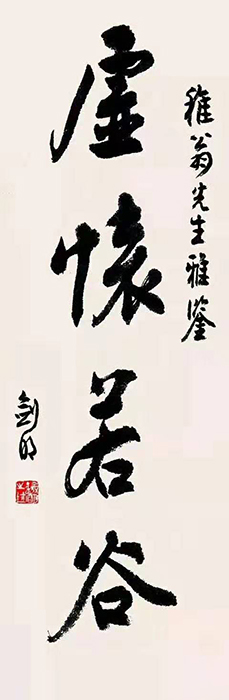 稚翁先生雅鉴
虚懷若谷
剑明